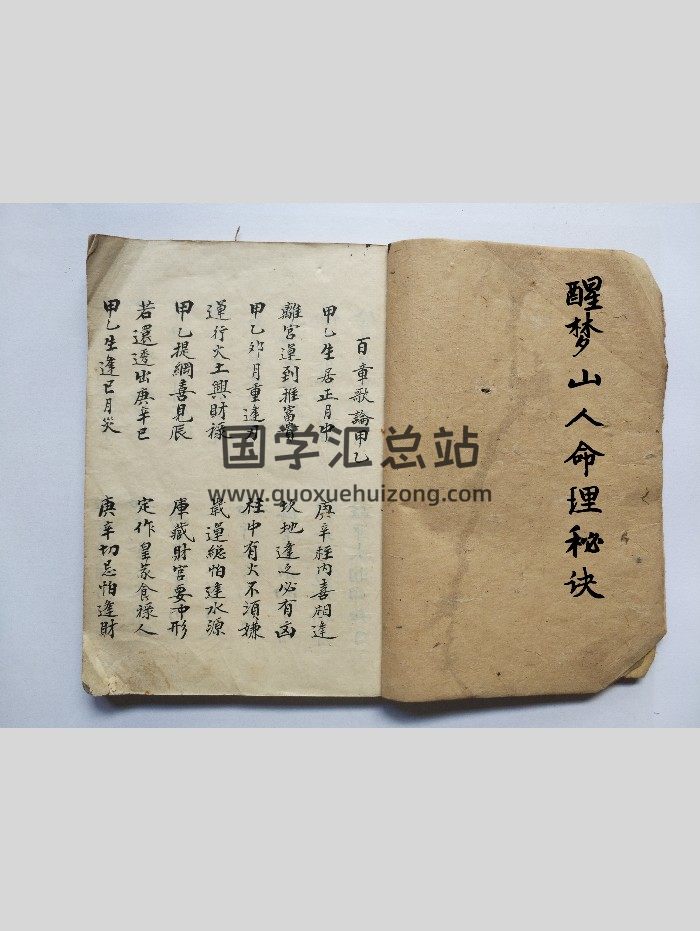 醒梦山人命理秘诀
百章歌論甲乙
甲乙生居正月中 庚辛柱内喜相逢
離宫運到推富貴 坎地逢之必有凶
甲乙卯月重逢刃 柱中有火不須嫌
運行火土興財祿 歲運總怕逢水源
甲乙提綱喜見辰 庫藏財官要冲形
若還透出庚辛已 定作皇家食祿人
甲乙生逢巳月災 庚辛切忌怕逢財
国学汇总站
www.guoxuehuizong.com